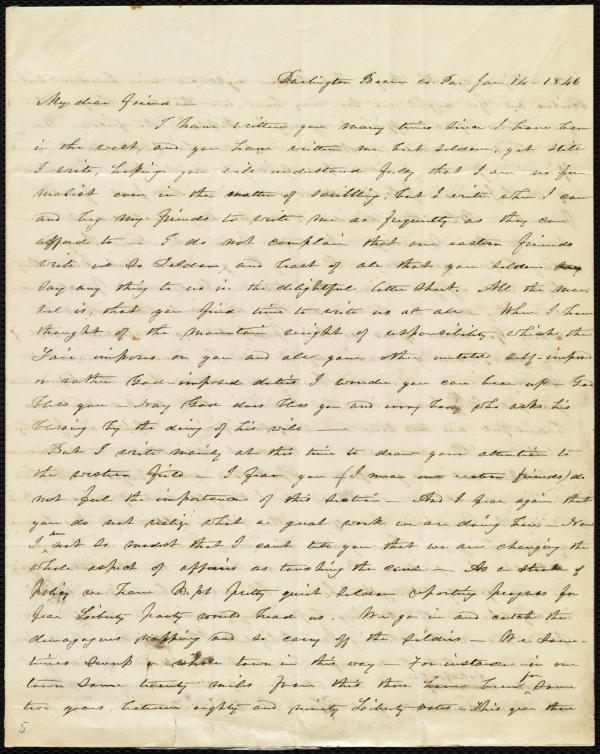 Darlington Beaver co. Pa. Jan 14 - 1846
My dear friend
I have written you many times since I have been
in the west, and you have written me but seldom, yet still
I write, hoping you will understand fully that I am no for
malist even in the matter of scribbling, but I write when I can
and beg my friends to write me as frequently as they can
afford to - I do not complain that our eastern friends
write us so seldom, and least of all that you seldom
say any thing to us in the delightful letter sheet. All the mar
vel is, that you find time to write us at all - When I have
thought of the mountain weight of responsibility which the
Fair imposes on you and all your other untold self-imposed
or rather God-imposed duties I wonder you can bear up - God
bless you - Nay God does bless you and every body who asks his
blessing by the doing of his will -
But I write mainly at this time to draw your attention to
the western field - I fear you - (I mean our eastern friends) do
not feel the importance of this section - And I fear again that
you do not realize what a great work we are doing here - Now
I am not so modest that I can't tell you that we are changing the
whole aspect of affairs as touching the cause - As a stroke of
policy we have kept pretty quiet, seldom reporting progress for
fear Liberty party would head us. We go in and catch the
demagogues napping and so carry off the soldiers - We some-
times sweep a whole town in this way - For instance in one
town some twenty miles from this there have been for some
two years between eighty and ninety Liberty votes - This year there
5